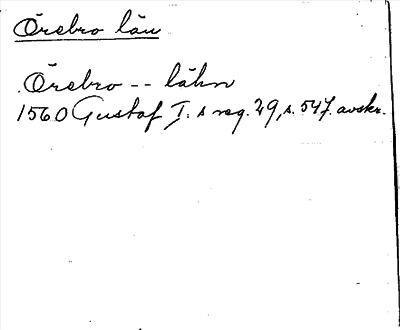 Örebro län
Örebro -- lähn
1560 Gustaf I. s reg. 29, s. 547. avskr.